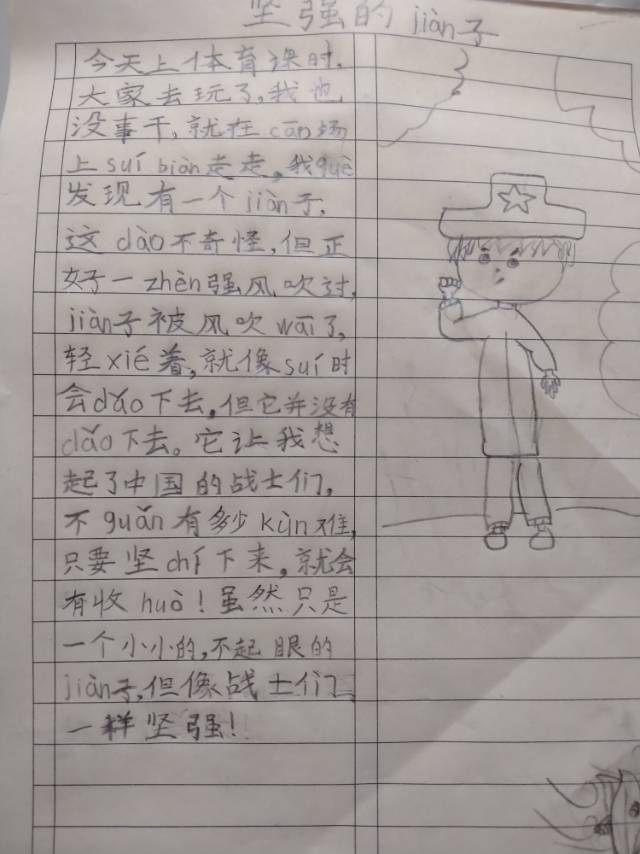 坚强的jiàn子
今天上体育课时,
大家去玩了,我也
没事干,就在cāo场
上suí biàn走走,我què
发现有一个jiàn子,
这dào不奇怪,但正
好一zhèn强风吹过,
jiàn子被风吹wāi了,
轻xié着,就像suí时
会dǎo下去,但它并没有
dǎo下去。它让我想
起了中国的战士们,
不guǎn有多少kùn难,
只要坚chí下来,就会
有收huò!虽然只是
一个小小的,不起眼的
jiàn子,但像战士们
一样坚强!